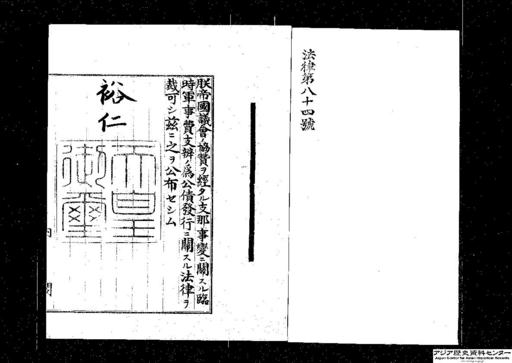 法律第八十四號
朕帝國議會ノ協贊ヲ經タル支那事變ニ關スル臨
時軍事費支辨ノ爲公債發行ニ關スル法律ヲ
裁可シ茲ニ之ヲ公布セシム
裕仁
天皇
御璽
内閣
アジア歴史資料センター
Japan Center for Asian Historical Records